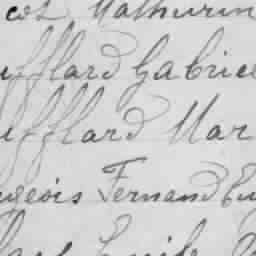 cot Mathurin
ufflard Gabrie
ufflard Mar
ugeois Fernand Eu
Emile